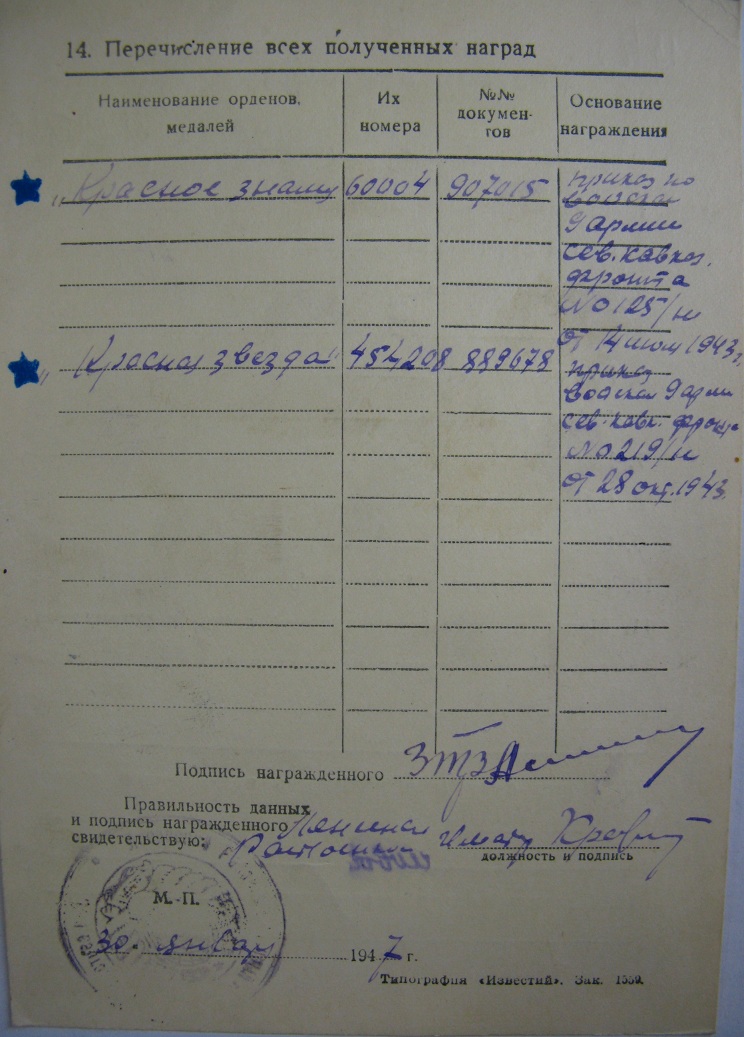 14. Перечисление всех полученных наград
Наименование орденов, медалей
Их номера
№№ документов
Основание награждения
„Красное знамя 60004 907015 приказ по
войскам
9 армии
сев. кавказ.
фронта
№ 0125/н
от 14 июля 1943 г.
„Красная звезда" 454208 889678 приказ
войскам 9 армии
сев. кавк. фронта
№ 0219/н
от 28 окт. 1943.
Подпись награжденного
Правильность данных
и подпись награжденного
свидетельствую:
должность и подпись
М. П.
30 " январ 1947 г.
Типография «Известий». Зак. 1559.